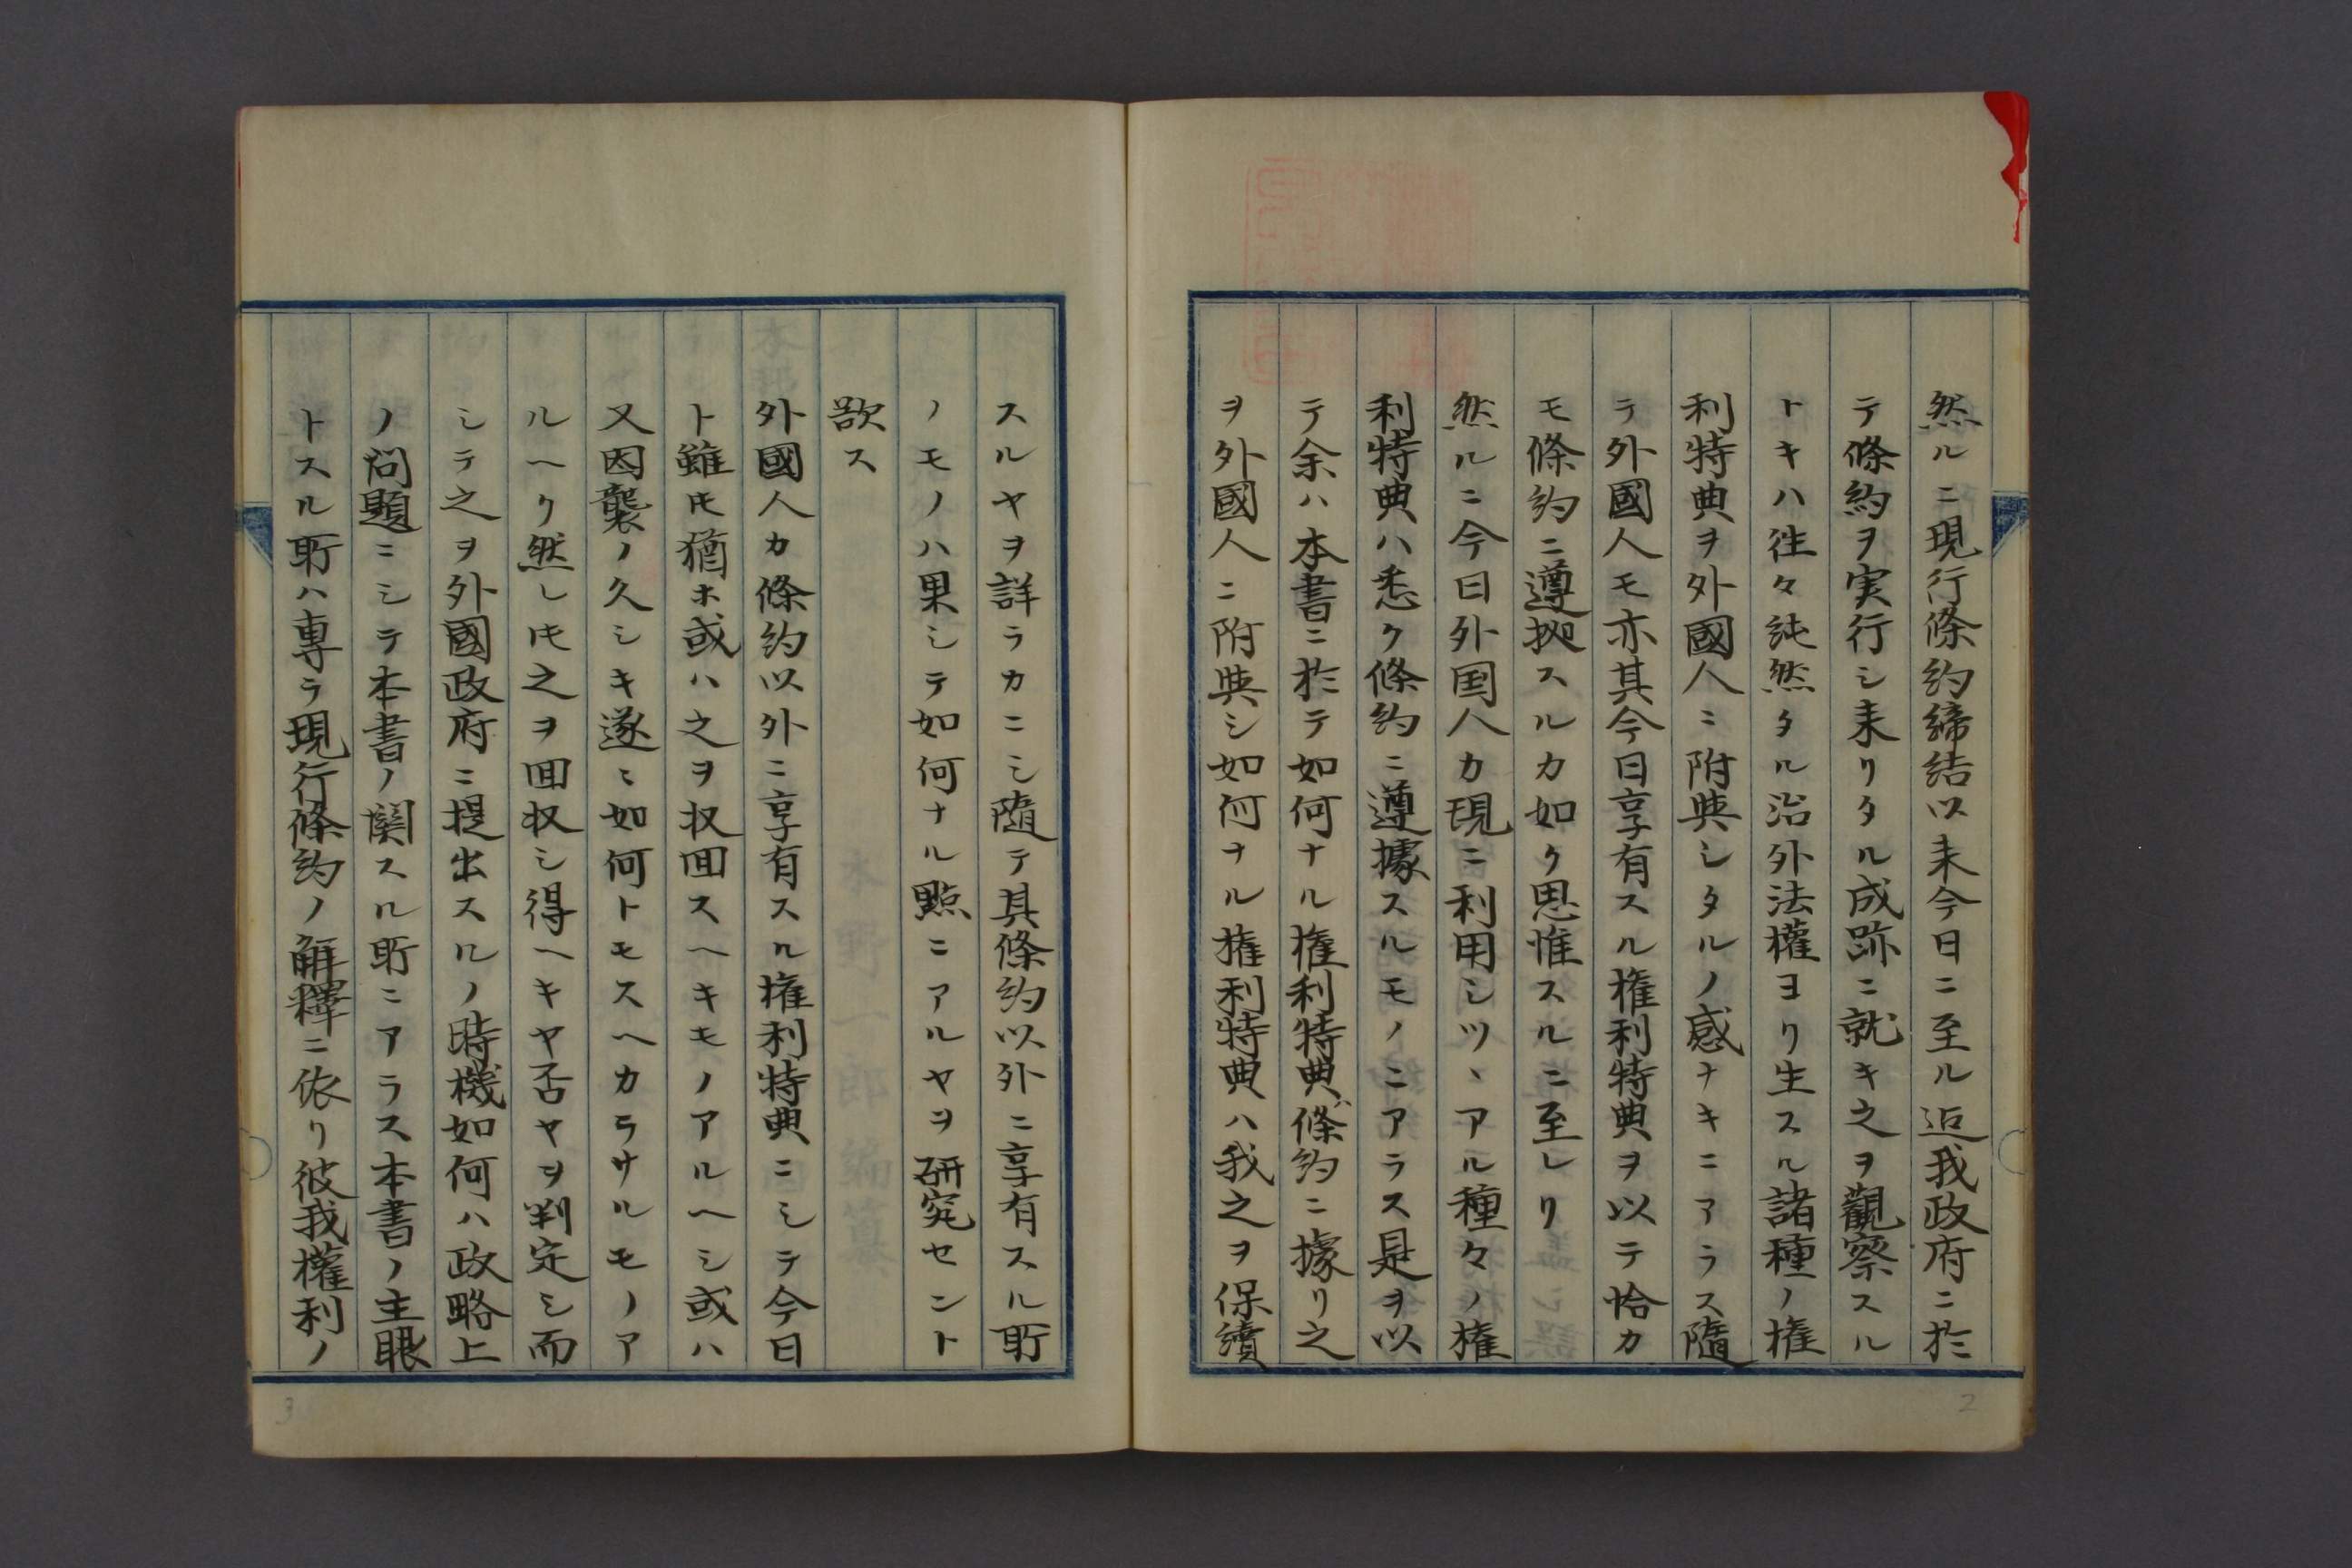 然ルニ現行條約締結以来今日ニ至ル迄我政府ニ於
テ條約ヲ実行シ来リタル成跡ニ就キ之ヲ觀察スル
トキハ徃々純然タル治外法權ヨリ生スル諸種ノ権
利特典ヲ外國人ニ附與シタルノ感ナキニアラス隨
テ外國人モ亦其今日享有スル権利特典ヲ以テ恰カ
モ條約ニ遵拠スルカ如ク思惟スルニ至レリ
然ルニ今日外国人カ現ニ利用シツヽアル種々ノ権
利特典ハ悉ク條約ニ遵據スルモノニアラス是ヲ以
テ余ハ本書ニ於テ如何ナル権利特典ハ條約ニ據リ之
ヲ外國人ニ附與シ如何ナル権利特典ハ我之ヲ保續
スルヤヲ詳ラカニシ隨テ其條約以外ニ享有スル所
ノモノハ果シテ如何ナル點ニアルヤヲ研究セント
欲ス
外國人カ條約以外ニ享有スル権利特典ニシテ今日
ト雖𪜈猶ホ或ハ之ヲ収回スヘキモノアルヘシ或ハ
又因襲ノ久シキ遂ニ如何トモスヘカラサルモノア
ルヘク然レ𪜈之ヲ回収シ得ヘキヤ否ヤヲ判定シ而
シテ之ヲ外國政府ニ提出スルノ時機如何ハ政略上
ノ問題ニシテ本書ノ関スル所ニアラス本書ノ主眼
トスル所ハ専ラ現行條約ノ解釋ニ依リ彼我權利ノ
2
3